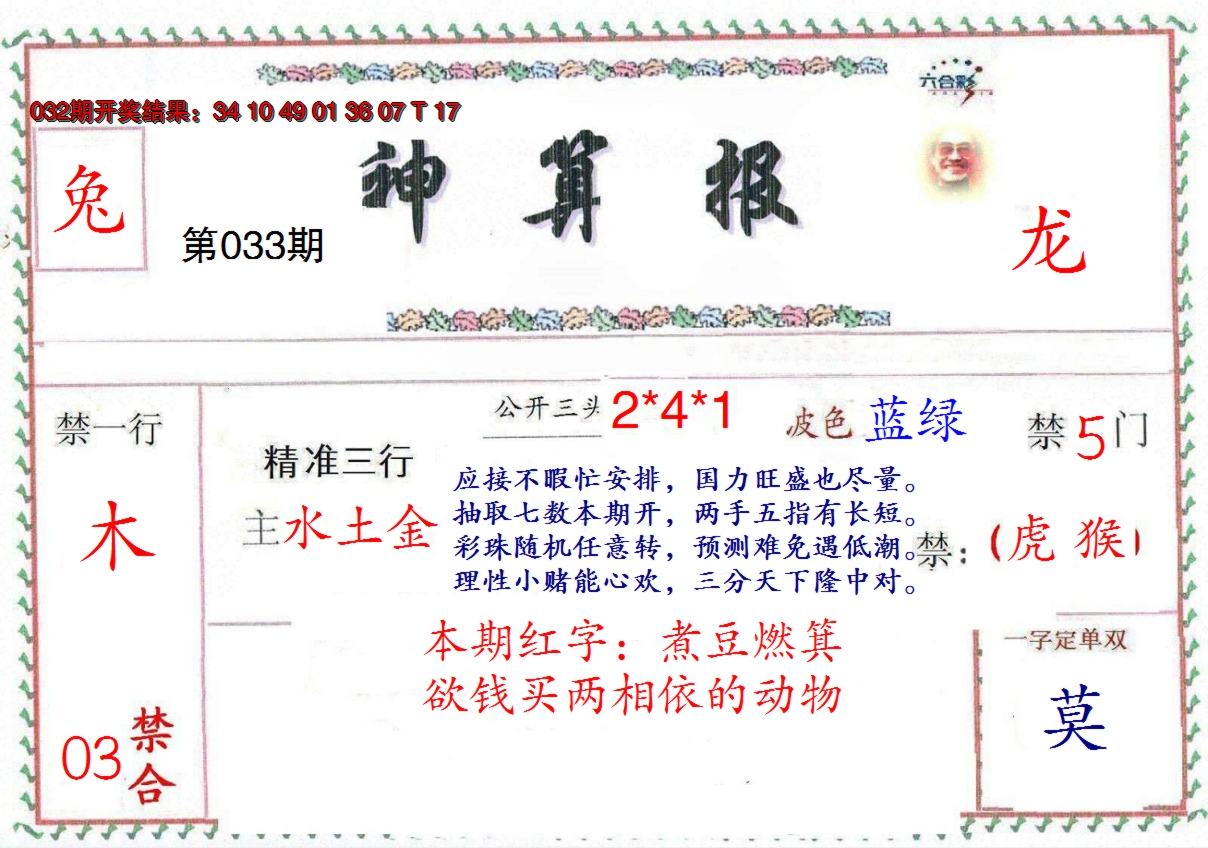 六合彩
032期开奖结果：34 10 49 01 36 07 T 17
神算报
兔
第033期
龙
公开三头 2*4*1
波色 蓝绿
禁5门
禁一行
木
精准三行
主水土金
应接不暇忙安排，国力旺盛也尽量。
抽取七数本期开，两手五指有长短。
彩珠随机任意转，预测难免遇低潮。
理性小赌能心欢，三分天下隆中对。
禁：（虎 猴）
本期红字：煮豆燃箕
欲钱买两相依的动物
一字定单双
莫
03禁合